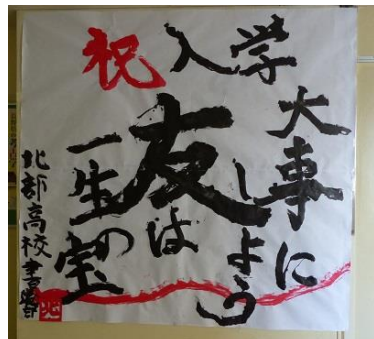 祝入学
大事に
しよう
友は
一生の宝
北部高校書